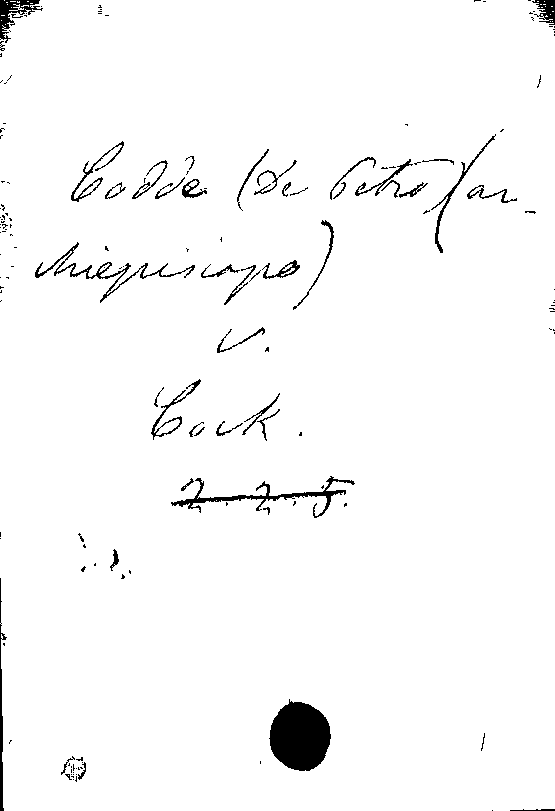 Codde (De Petro (ar-
chiepiscopo)
v.
Cock.
2. 2. 5.